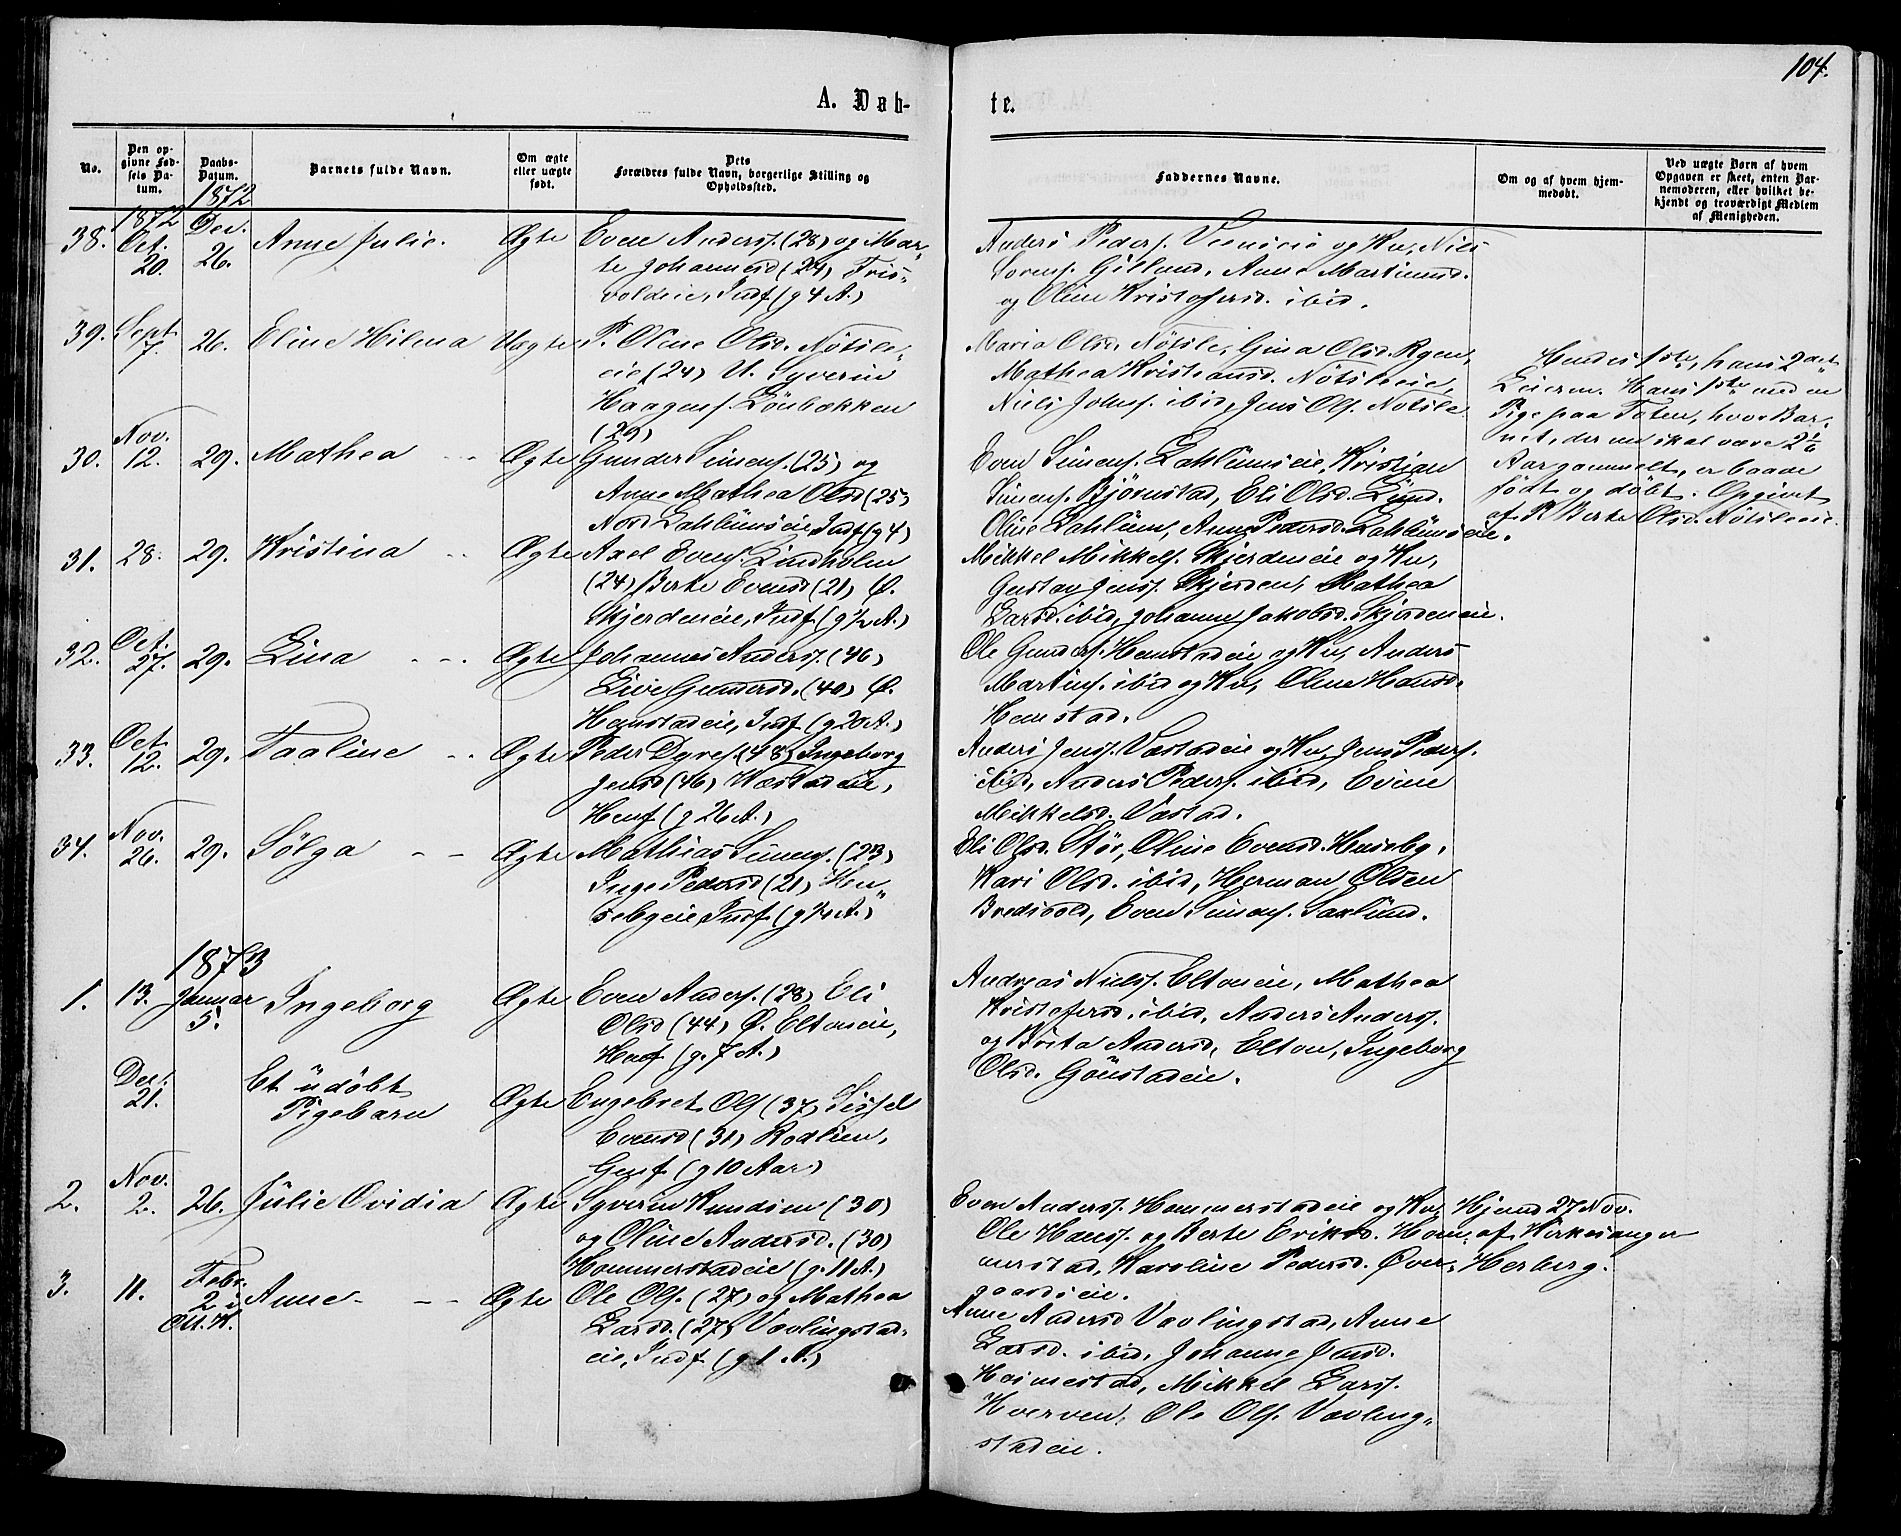 104.
A. Døb-
te.
No.
Den op-
givne Fød-
sels Da-
tum.
Daabs-
Datum.
Barnets fulde Navn.
Om ægte
eller uægte
født.
Dets
Forældres fulde Navn, borgerlige Stilling og
Opholdssted.
Faddernes Navne.
Om og af hvem hjem-
medøbt.
Ved uægte Barn af hvem
Opgaven er skeet, enten Bar-
nemoderen, eller hvilket be-
kjendt og troværdigt Medlem
af Menigheden.
1872
1872
38.
Oct.
20.
Dec.
26.
Anne Julie.
Ægte
Even Anders. (28) og Mar-
te Johannesd (24) Tris-
voldeie, Indf (g 4 A.)
Anders Peders. og Kv, Niels
Sorens. Gillund, Anne Martinusd.
og Oline Kristofersd. ibid.
39.
Sept
7.
26.
Eline Hilma
Uægte
P. Oline Olsd. Nötsle-
eie (24) U. Syverin
Haagens. Lönbækken
(29)
Maria Olsd. Nötsle, Gina Olsd. Rgen,
Mathea Kristiansd. Nötsleeie,
Niels Johns. ibid, Jens Ols. Nötsle
Hendes 1ste, hans 2det
Leierm. Hans 1ste med en
Pige paa Toten, hvor Bar-
net, der nu skal være 2 1/6
Aar gammelt, er baade
födt og döbt. Opgivet
af K Berte Olsd. Nötsleeie.
30.
Nov.
12.
29.
Mathea
Ægte
Gunder Simens. (25) og
Anne Mathea Olsd (25)
Nord Lahlumseie, Indf (g 4)
Even Simens. Lahlumseie, Kristian
Simens. Bjørnstad, Eli Olsd. Lund.
Oline Lahlum, Anne Pedersd. Lahlumseie.
31.
28.
29.
Kristina
Ægte
Axel Evens. Lindholm
(24) Berte Evensd (21) Ø.
Skjerdeneie, Indf. (g 1/2 A.)
Mikkel Mikkels. Skjerdeneie og Kv,
Gustav Jenss. Skjerden, Mathea
Larsd. ibid, Johanne Jakobsd. Skjerdeneie.
32.
Oct.
27.
29.
Lina
Ægte
Johannes Anders. (46)
Live Gundersd. (40) Ø.
Hemstadeie, Indf (g 20 A.)
Ole Gunders. Hemstadeie og Kv, Anders
Martins. ibid og Kv, Oline Hansd.
Hemstad.
33.
Oct
12.
29.
Taaline
Ægte
Peder Dyres (48) Ingeborg
Jensd (46) Væstadeie,
Henf (g 26 A.)
Anders Jenss. Væstadeie og Kv, Jens Peders.
ibid, Anders Peders. ibid, Evine
Mikkelsd. Væstad.
34.
Nov.
26.
29.
Sölga
Ægte
Mathias Simens. (23)
Inge Pedersd (21) Hu-
sebyeie, Indf. (g 1/4 A.)
Eli Olsd. Stör, Oline Evensd. Huseby,
Kari Olsd. ibid, Herman Olsen
Bredvold, Even Simens. Saxlund.
1873
1.
13.
Januar
5.
Ingeborg
Ægte
Even Anders. (28) Eli
Olsd (44) Ø. Eltoneie,
Henf (g. 7 A.)
Andreas Niels. Eltoneie, Mathea
Kristofersd. ibid, Anders Anderss.
og Brita Andersd, Elton, Ingeborg
Olsd. Gönstadeie.
Dec.
21.
Et udöbt
Pigebarn
Ægte
Engebret Ols (37) Sissel
Evensd (31) Rodlien,
Genf. (g 10 Aar)
2.
Nov.
2.
26.
Julie Ovidia
Ægte
Syverin Knudsen (30)
og Oline Andersd. (30)
Hommerstadeie (g. 11 A.)
Even Anderss. Hommerstadeie og Kv,
Ole Hanss. og Berte Eriksd. Hom-
merstad, Karoline Pedersd. Över-
gaardseie.
Hjemd 27 Nov.
af Kirkesanger
Herberg.
3.
11.
Febr.
2 i
Ott. K.
Anne
Ægte
Ole Ols. (27) og Mathea
Larsd. (27) Vævlingstad-
eie, Indf (g 1 A.)
Anne Andersd Vævlingstad, Anne
Larsd. ibid, Johanne Jensd.
Heimestad, Mikkel Larss.
Hverven, Ole Ols. Vævling-
stadeie.